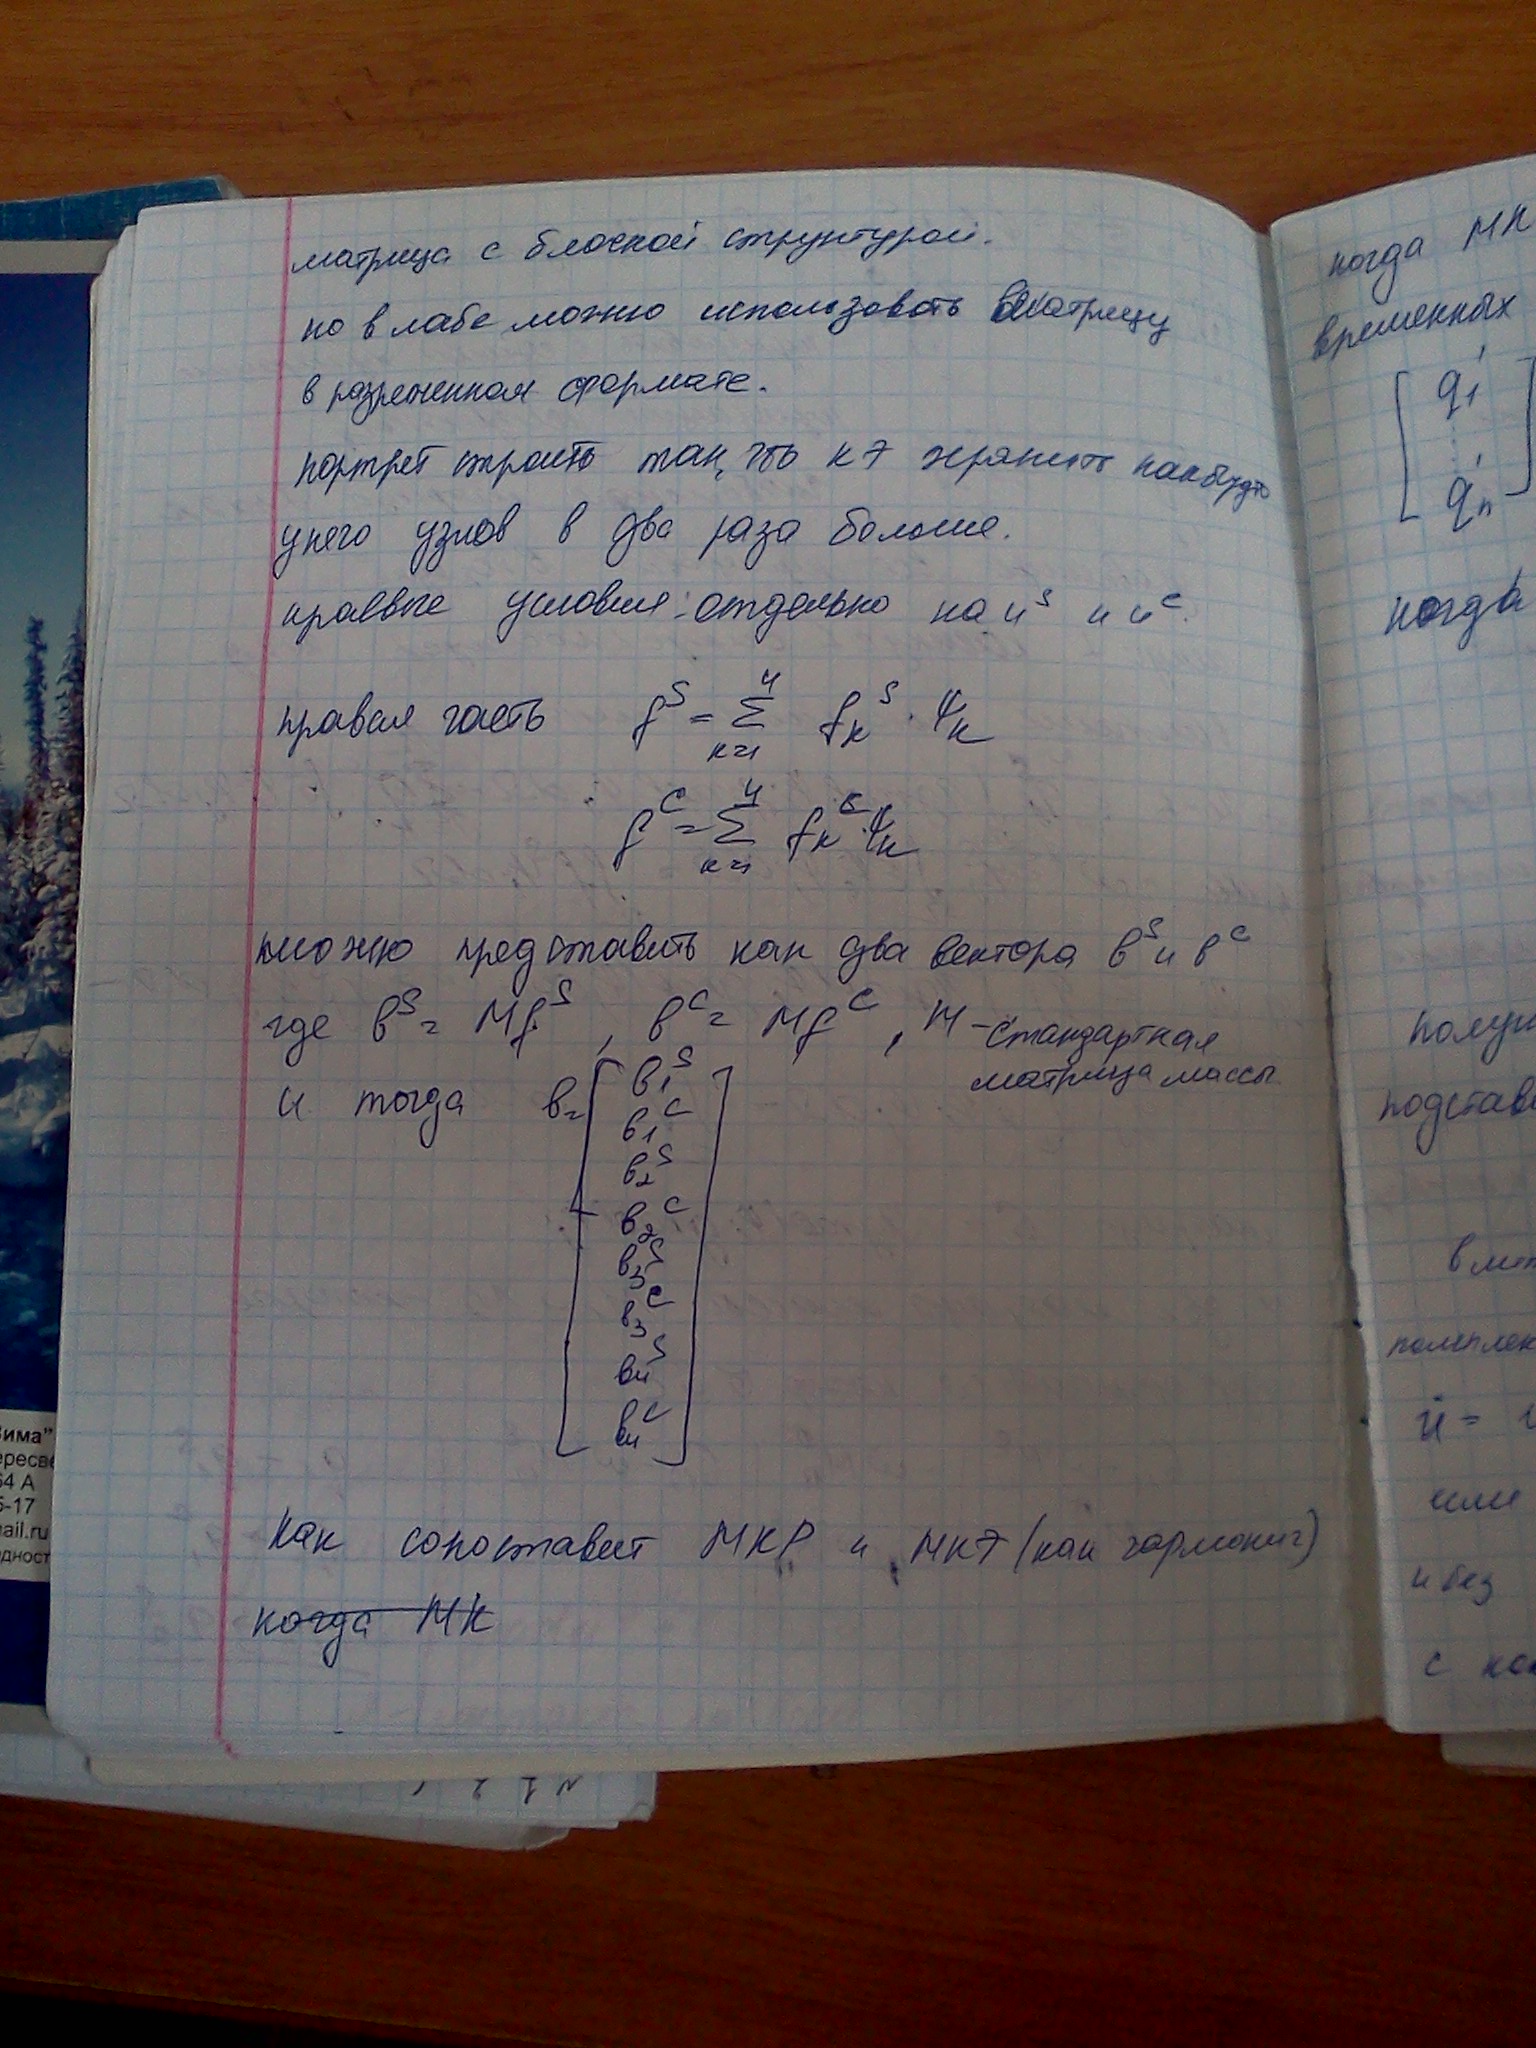 матрица с блочной структурой.
но в лабе можно использовать матрицу
в разреженном формате.
портрет строить так, что кэ хранить как будто
у него узлов в два раза больше.
краевые условия: отдельно на u^s и u^c.
правая часть f^s = Σ_{k=1}^{4} f_k^s · ψ_k
f^c = Σ_{k=1}^{4} f_k^c · ψ_k
можно представить как два вектора b^s и b^c
где b^s = Mf^s, b^c = Mf^c, M - стандартная
матрица массы
и тогда b =
b_1^s
b_1^c
b_2^s
b_2^c
b_3^s
b_3^c
b_4^s
b_4^c
Как сопоставит МКР и МКЭ (как гармонич)
когда МК
когда МК
временных
q_1^1
⋮
q_n^1
когда
получ
подстав
в мет
комплек
или
и без
с ко
Зима"
ересве
64 А
5-17
mail.ru
одност